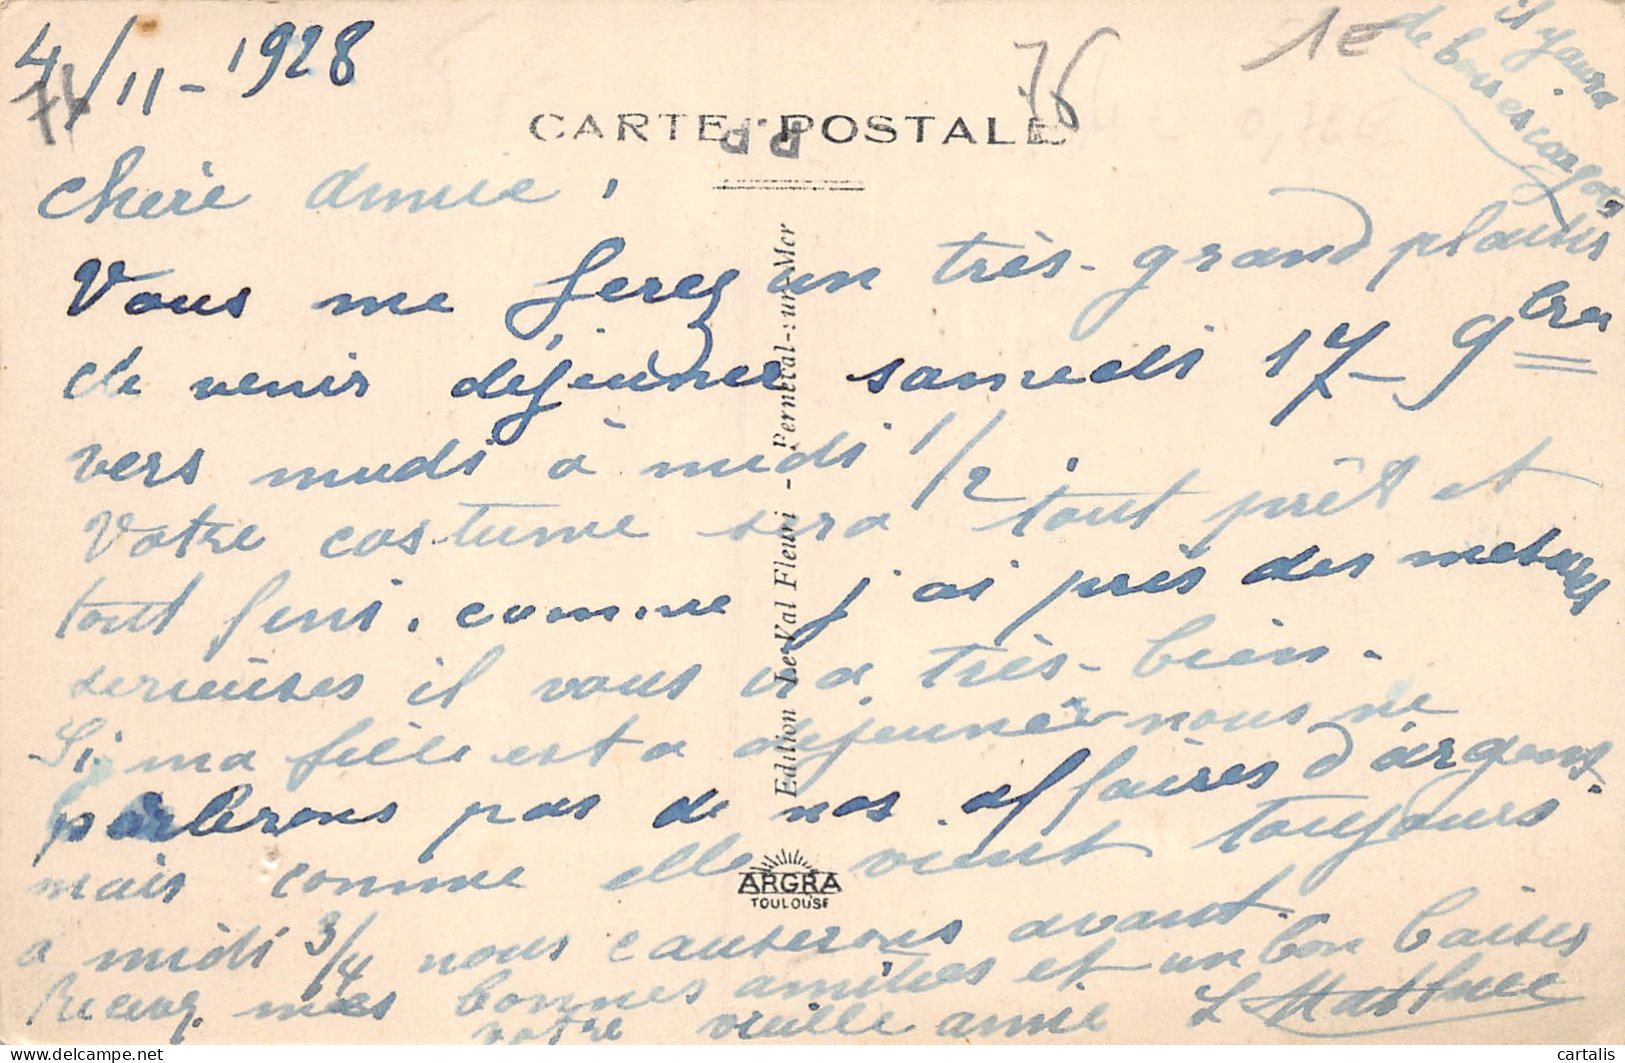 4/11-1928
76
1€
il y aura
de bons escargots
CARTE POSTALE
chère Amie,
Vous me ferez un très-grand plaisir
de venir déjeuner samedi 17-9bre
vers midi à midi 1/2
Votre costume sera tout prêt et
tout fini. comme j'ai pris des mesures
serieuses il vous ira très-bien.
Si ma fille est a dejeuner nous ne
parlerons pas de nos affaires d'argent.
mais comme elle vient toujours
a midi 3/4 nous causerons avant.
Recevez mes bonnes amitiés et un bon baiser
votre vieille amie L
Edition Le Val Fleuri - Berneval-sur-Mer
ARGRA
TOULOUSE
cartalis